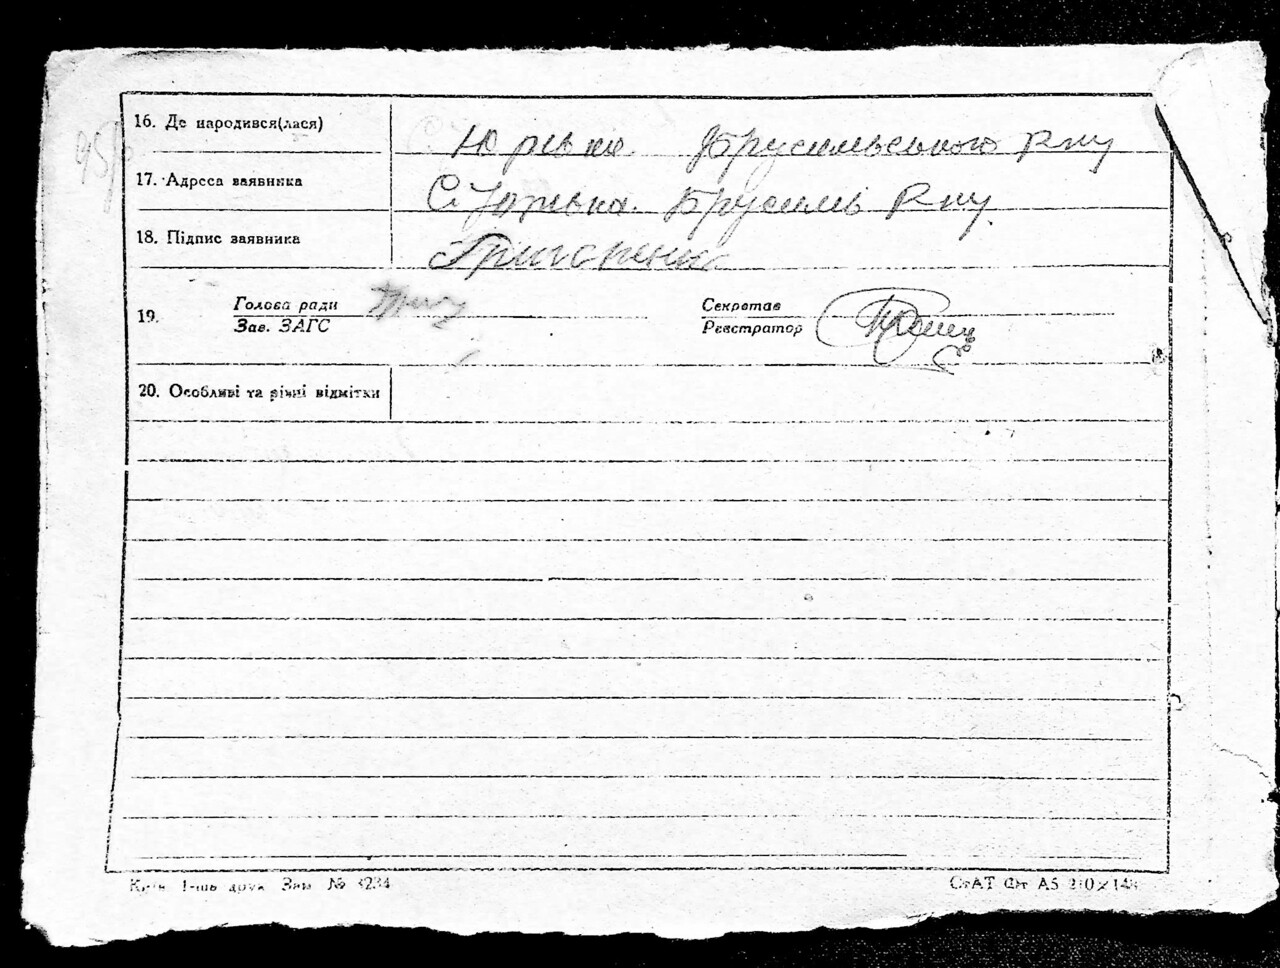 16. Де народився(лася) Юрівка Брусилівського Р-ну
17. Адреса заявника С Юрівка. Брусилів Р-ну
18. Підпис заявника Григоренко
19.
Голова ради
Зав. ЗАГС
Секретар
Реєстратор
20. Особливі та різні відмітки
Зам № 3234
СтАТ Фт А5 210×148